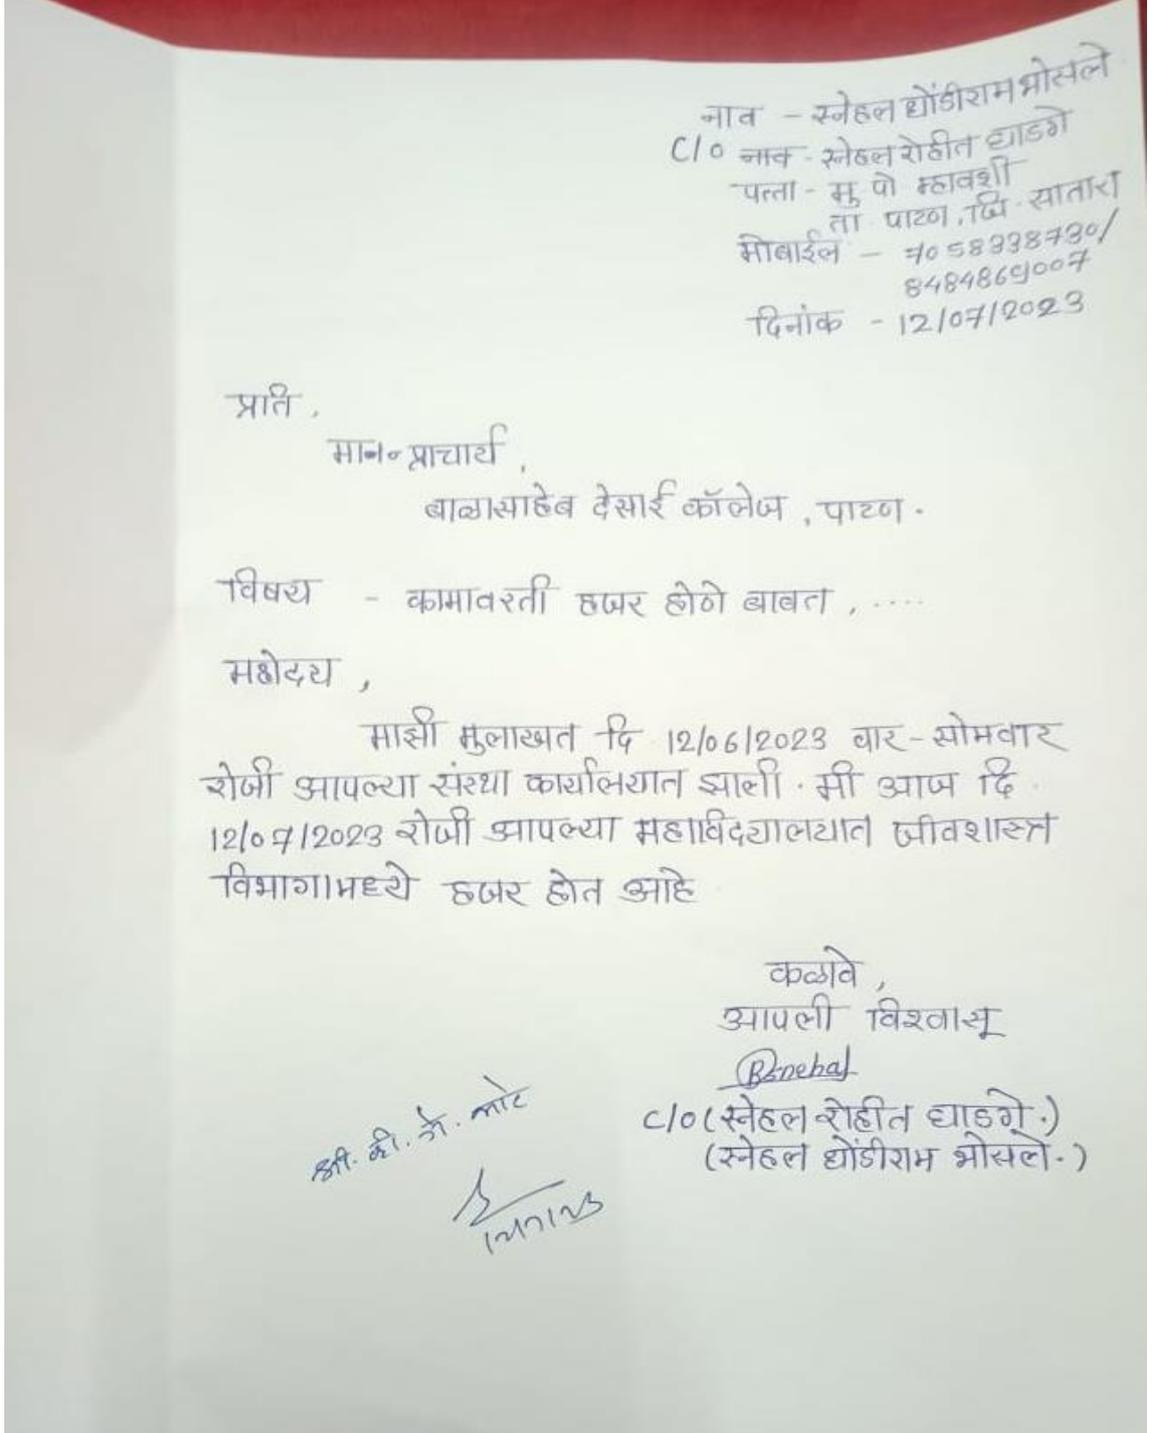 नाव - स्नेहल धोंडीराम भोसले
C/o नाव - स्नेहल रोहीत घाडगे
पत्ता - मु पो म्हावशी
ता पाटण, जि. सातारा
मोबाईल - 7058338730/
8484869007
दिनांक - 12/07/2023
प्रति,
मान॰ प्राचार्य,
बाळासाहेब देसाई कॉलेज, पाटण.
विषय - कामावरती हजर होणे बाबत, ....
महोदय,
माझी मुलाखत दि 12/06/2023 वार - सोमवार
रोजी आपल्या संस्था कार्यालयात झाली. मी आज दि.
12/07/2023 रोजी आपल्या महाविद्यालयात जीवशास्त्र
विभागामध्ये हजर होत आहे
कळावे,
आपली विश्वासू
C/o (स्नेहल रोहीत घाडगे.)
(स्नेहल धोंडीराम भोसले.)